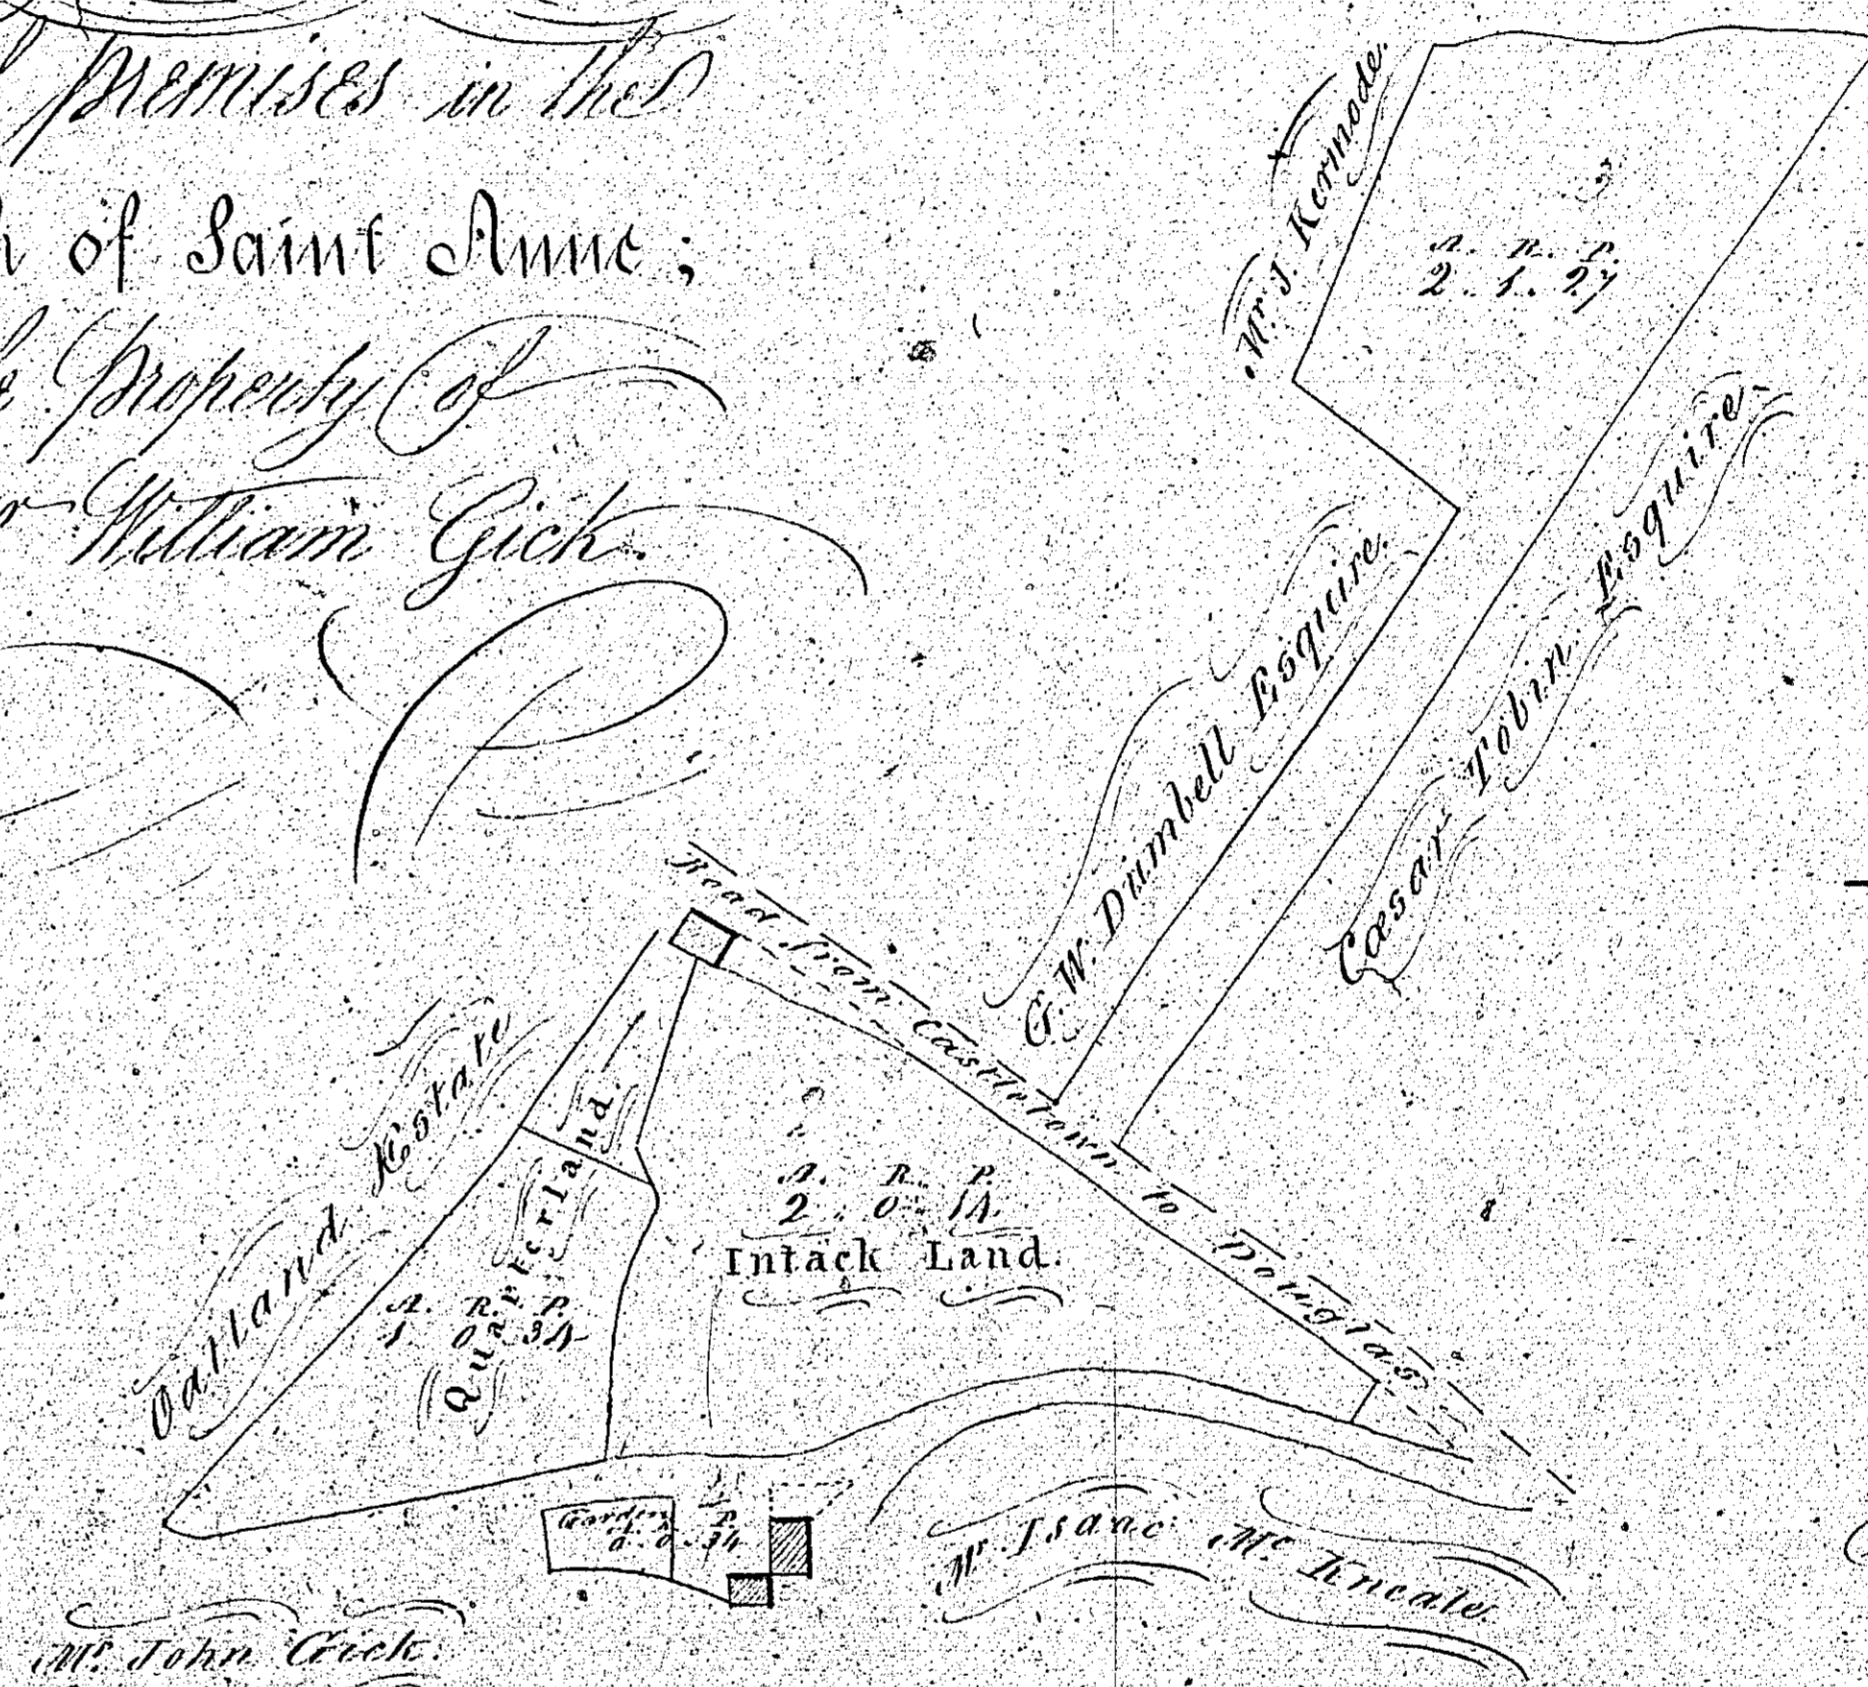 premises in the
of Saint Anne;
Property of
William Gick.
Mr. J. Kermode.
A. R. P.
2 . 1 . 27
G. W. Dumbell Esquire.
Cæsar Tobin Esquire.
Road from Castletown to Douglas
Oatland Estate
Quarterland.
A. R. P.
1 0 34
A. R. P.
2 . 0 . 14.
Intack Land.
Garden
P.
0 . 0 . 34
Mr. Isaac Mc Kneale.
Mr. John Gick.